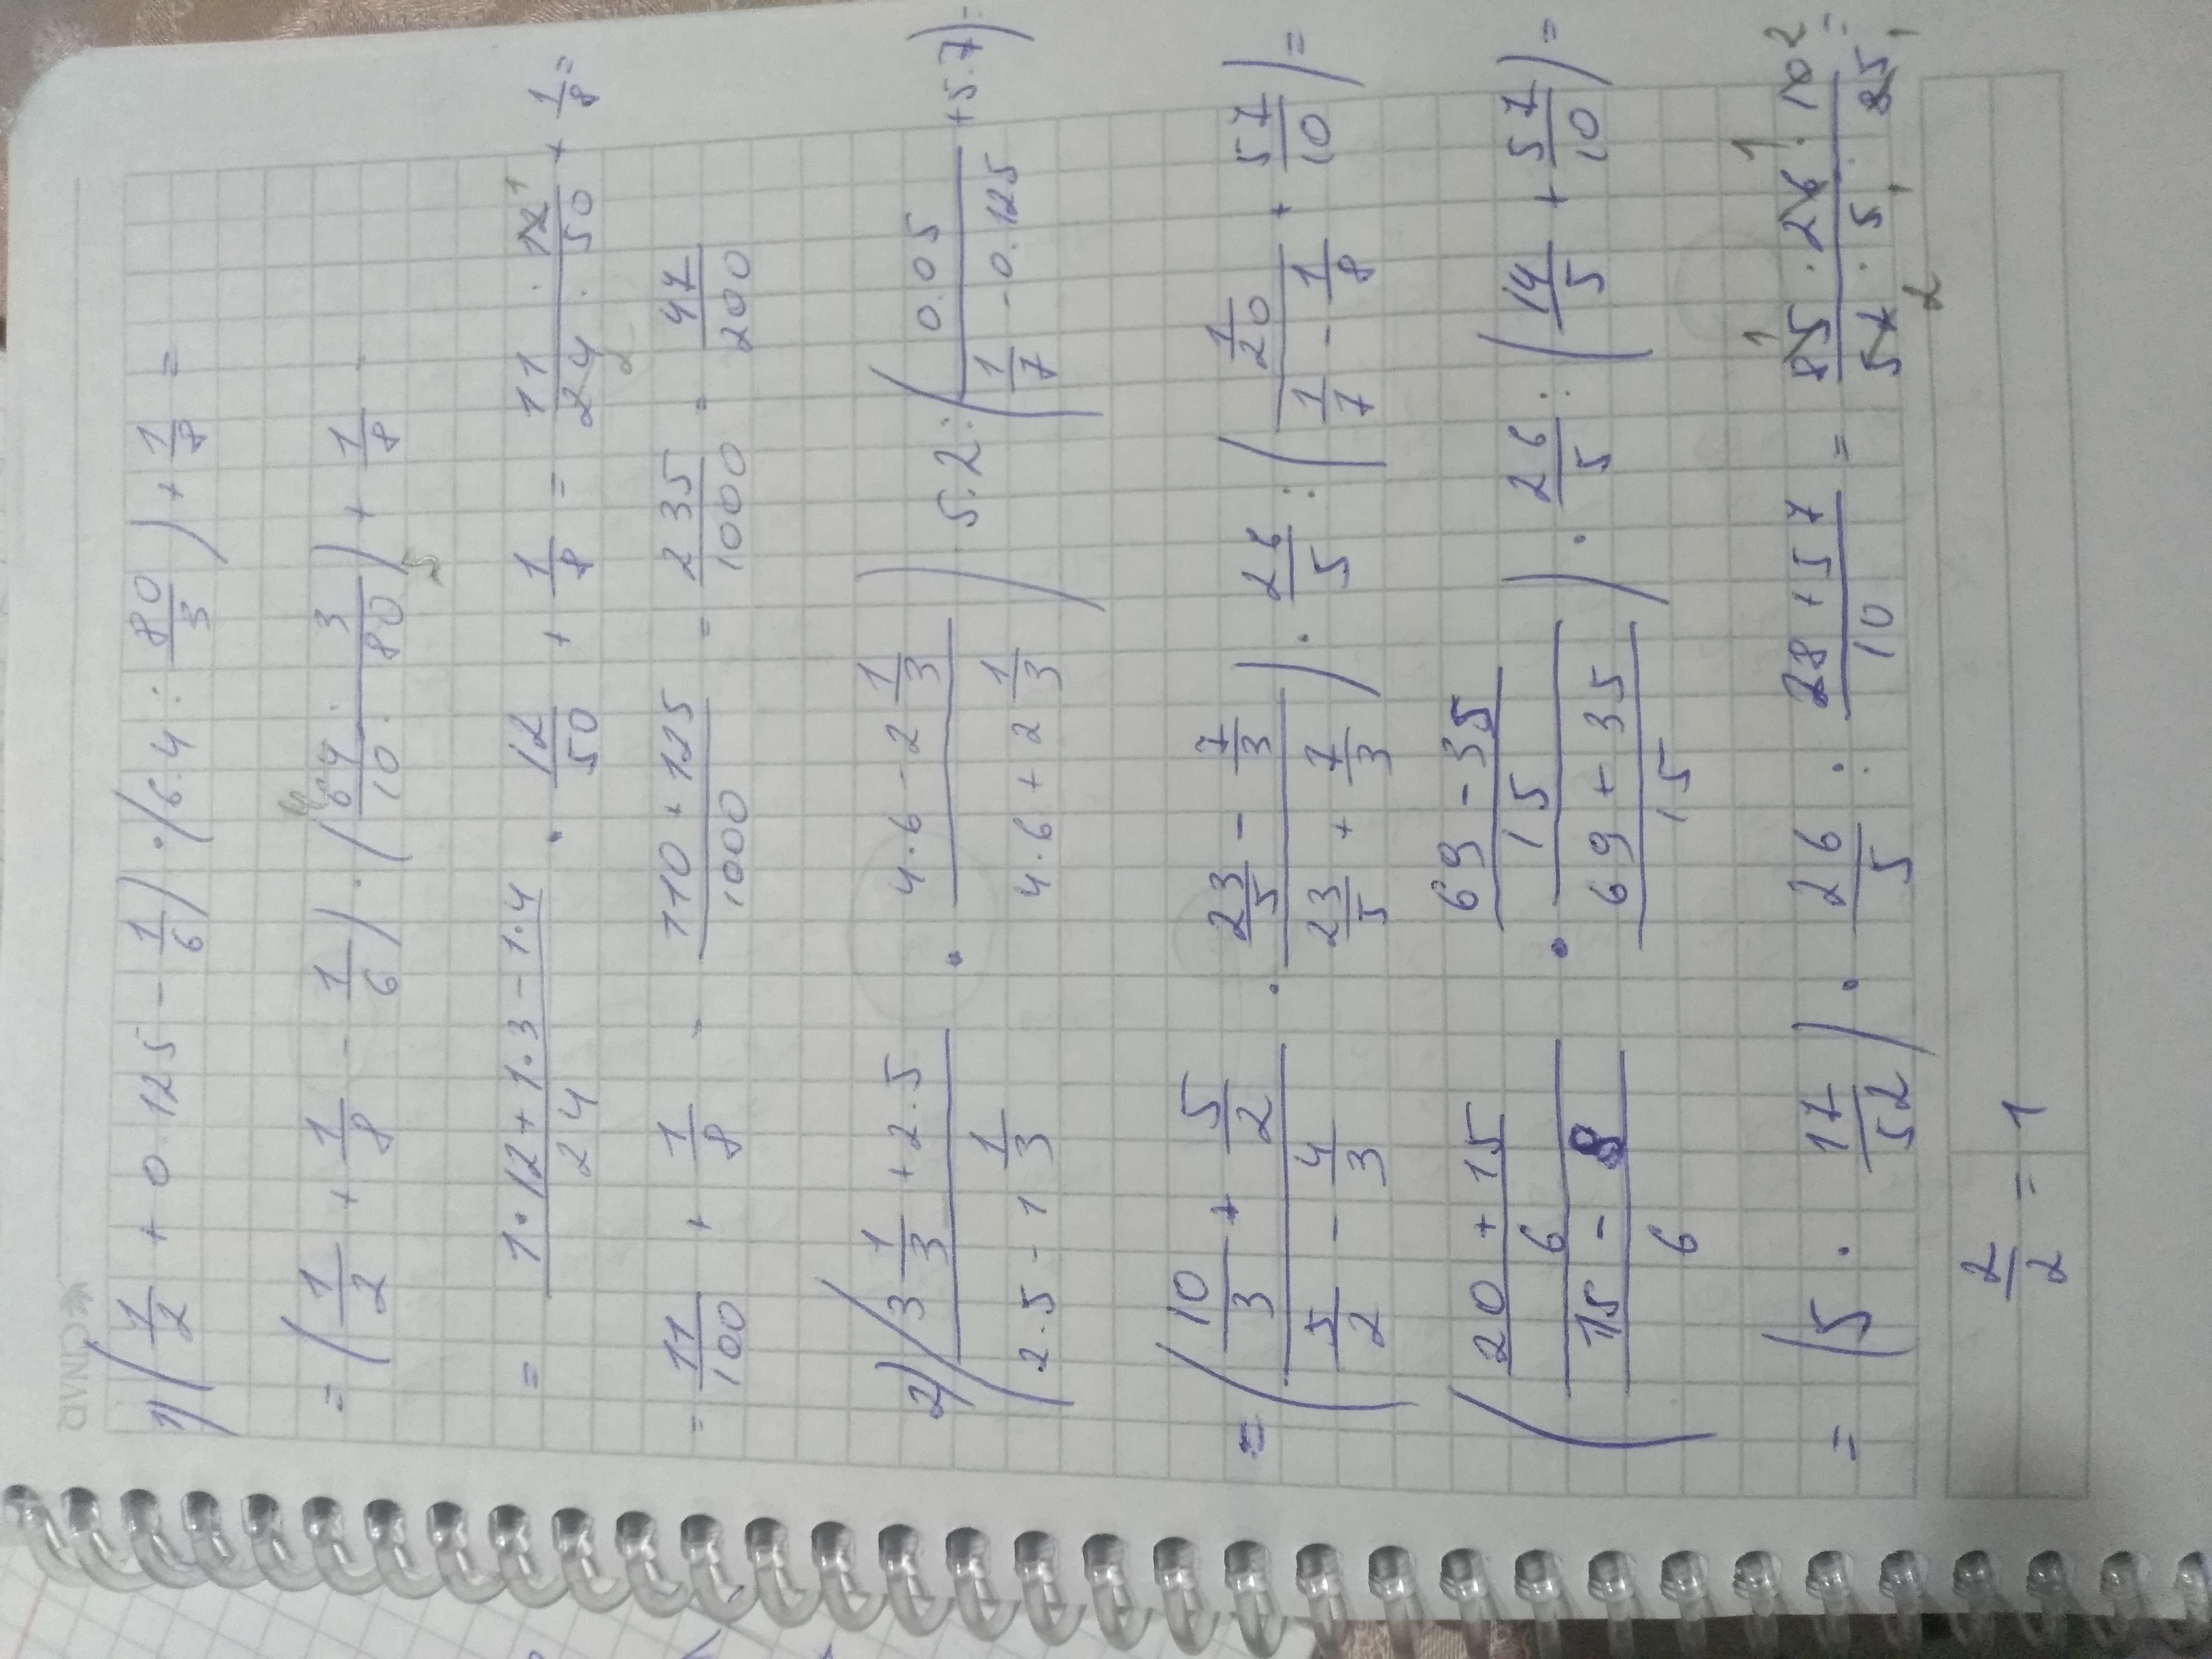 CINAR
1) (1/2 + 0.125 - 1/6) · (6.4 : 80/3) + 1/8 =
= (1/2 + 1/8 - 1/6) · (64/10 · 3/80) + 1/8
= (1·12 + 1·3 - 1·4)/24 · 12/50 + 1/8 = (11 · 12)/(24 · 50) + 1/8 =
= 11/100 + 1/8 = (110 + 125)/1000 = 235/1000 = 47/200
2) ((3 1/3 + 2.5)/(2.5 - 1 1/3) · (4.6 - 2 1/3)/(4.6 + 2 1/3)) 5.2 : (0.05/(1/7 - 0.125) + 5.7) =
= ((10/3 + 5/2)/(5/2 - 4/3) · (23/5 - 7/3)/(23/5 + 7/3)) · 26/5 : ((1/20)/(1/7 - 1/8) + 57/10) =
(((20 + 15)/6)/((15 - 8)/6) · ((69 - 35)/15)/((69 + 35)/15)) · 26/5 : (14/5 + 57/10) =
= (5 · 17/52) · 26/5 : (28 + 57)/10 = (85 · 26 · 10)/(52 · 5 · 85) =
2/2 = 1